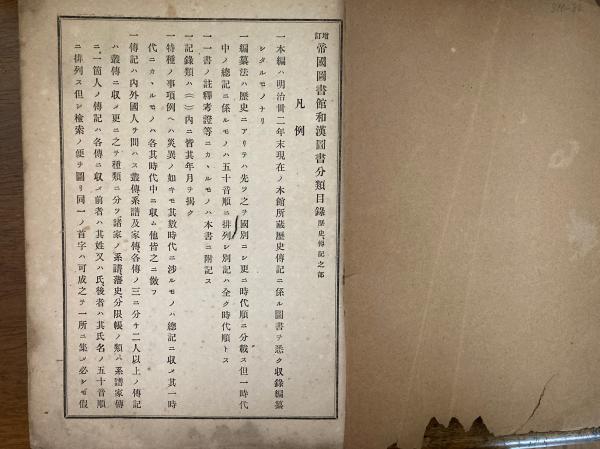 増訂 帝國圖書館和漢圖書分類目錄 歷史、傳記之部
凡例
一本編ハ明治卅二年末現在ノ本館所藏歷史傳記ニ係ル圖書ヲ悉ク收錄編纂
シタルモノナリ
一編纂法ハ歷史ニアリテハ先ツ之ヲ國別ニシ更ニ時代順ニ分載ス但一時代
中ノ總記ニ係ルモノハ五十音順ニ排列シ別記ハ全ク時代順トス
一一書ノ註釋考證等ニカヽルモノハ本書ニ附記ス
一記錄類ハ()內ニ皆其年月ヲ揭ク
一特種ノ事項例ヘハ災異ノ如キモ其數時代ニ涉ルモノハ總記ニ收メ其一時
代ニカヽルモノハ各其時代中ニ收ム他皆之ニ倣フ
一傳記ハ內外國人ヲ問ハス叢傳系譜及家傳、各傳ノ三ニ分チ二人以上ノ傳記
ハ叢傳ニ收メ更ニ之ヲ種類ニ分ツ諸家ノ系譜、藩史、分限帳ノ類ハ系譜家傳
ニ、一箇人ノ傳記ハ各傳ニ收メ前者ハ其姓又ハ氏、後者ハ其氏名ノ五十音順
ニ排列ス但シ檢索ノ便ヲ圖リ同一ノ首字ハ可成之ヲ一所ニ集メ必シモ假